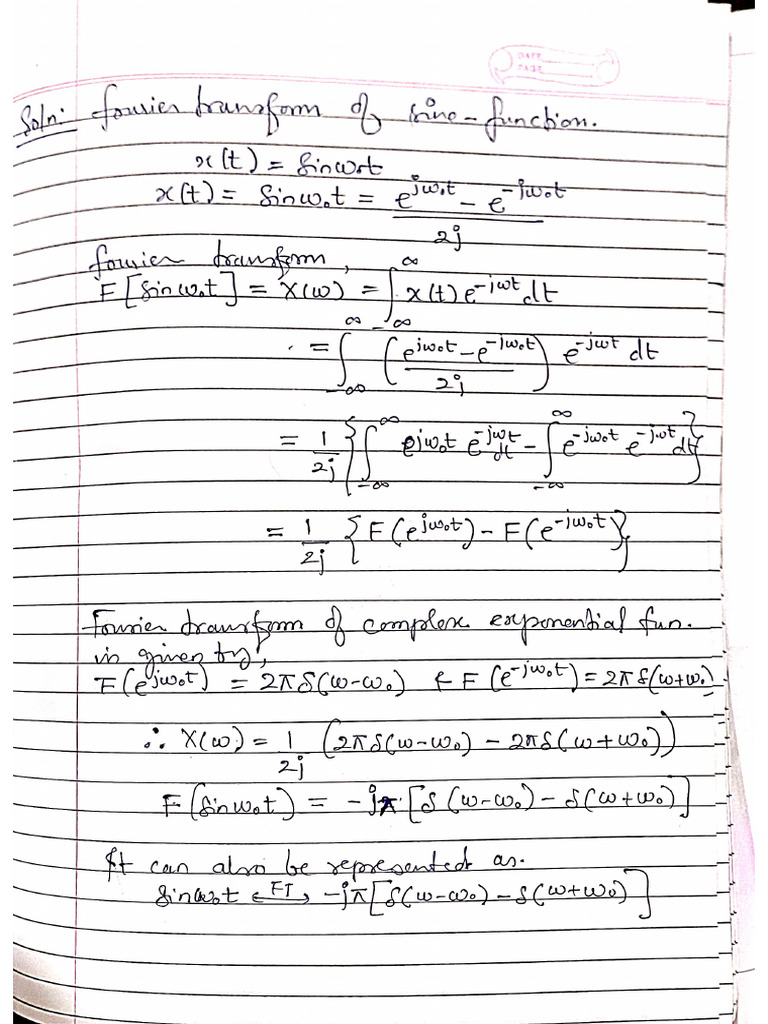 DATE
PAGE
Soln: fourier transform of sine-function.
x(t) = Sinω₀t
x(t) = Sinω₀t = (e^{jω₀t} - e^{-jω₀t})/2j
fourier transform,
F[Sinω₀t] = X(ω) = ∫_{-∞}^{∞} x(t) e^{-jωt} dt
= ∫_{-∞}^{∞} ((e^{jω₀t} - e^{-jω₀t})/2j) e^{-jωt} dt
= 1/2j {∫_{-∞}^{∞} e^{jω₀t} e^{-jωt} dt - ∫_{-∞}^{∞} e^{-jω₀t} e^{-jωt} dt}
= 1/2j {F(e^{jω₀t}) - F(e^{-jω₀t})}
Fourier transform of complex exponential fun.
is given by,
F(e^{jω₀t}) = 2πδ(ω-ω₀) & F(e^{-jω₀t}) = 2πδ(ω+ω₀)
∴ X(ω) = 1/2j (2πδ(ω-ω₀) - 2πδ(ω+ω₀))
F(Sinω₀t) = -jπ[δ(ω-ω₀) - δ(ω+ω₀)]
It can also be represented as.
Sinω₀t ⟷^{FT} -jπ[δ(ω-ω₀) - δ(ω+ω₀)]